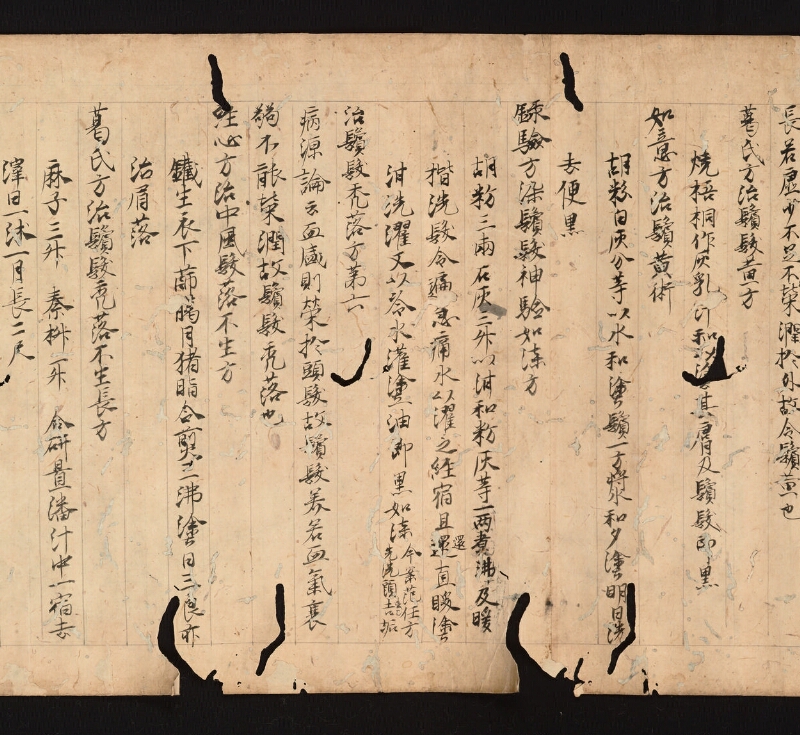 長若虚少不足不榮潤於外故令鬚黄也
葛氏方治鬚髮黄方
燒梧桐作灰乳汁和以塗其膚及鬚髮即黒
如意方治鬚黄術
胡粉白灰分等以水和塗鬚一方將水和夕塗明日洗
去便黒
録驗方染鬚髮神驗如漆方
胡粉三兩石灰三升以泔和粉灰等一兩煮沸及暖
揩洗髮令遍急痛水以濯之經宿且還直暖塗
還
泔洗濯又以冷水灌塗油即黒如漆今案范汪方
先洗頭去垢
治鬚髮禿落方第六
病源論云血盛則榮於頭髮故鬚髮美若血氣衰
弱不能榮潤故鬚髮禿落也
經心方治中風髮落不生方
鐵生衣下篩臈月猪脂合煎三沸塗日三良亦
治眉落
葛氏方治鬚髮禿落不生長方
麻子三升秦椒二升合研置潘汁中一宿去
滓日一沐一月長二尺